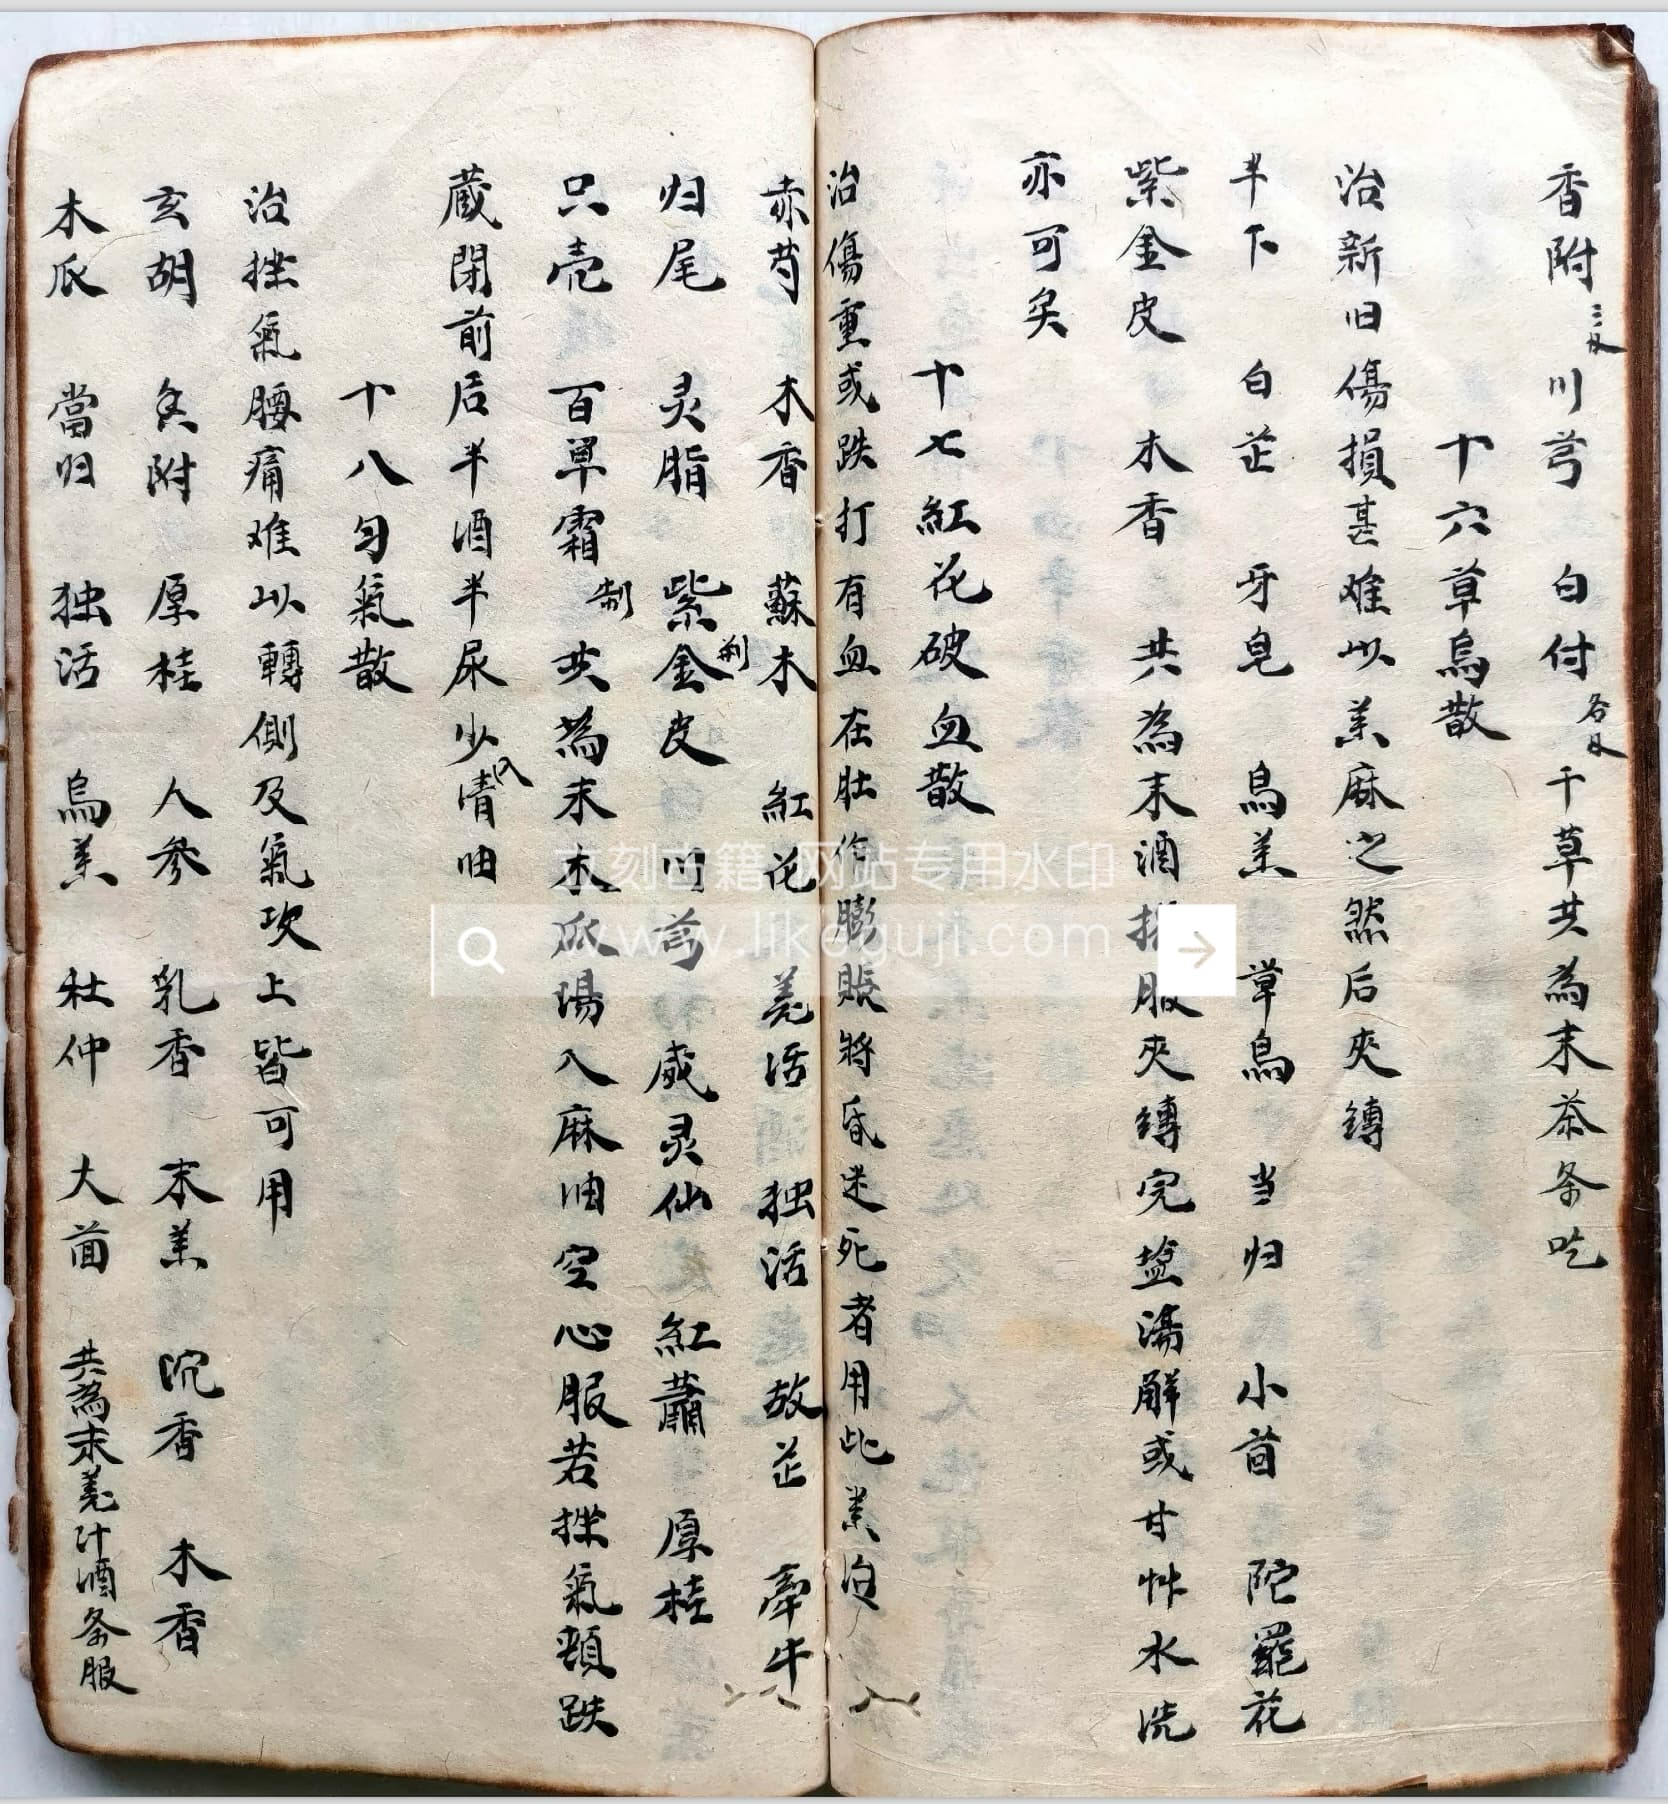 香附三不川芎 白付各不千草共為末茶条吃
十六草烏散
治新旧傷損甚难以羔麻之然后夾鏄
半下 白芷 牙皂 烏羔 草烏 当归 小茴 陀羅花
紫金皮 木香 共為末酒 服夾縳完盐湯觧或甘艸水洗
亦可矣
十七紅花破血散
治傷重或跌打有血在肚作膨賬將昏迷死者用此羔治
赤芍 木香 蘇木 紅花 羗活 独活 放芷 牽牛
归尾 灵脂 紫荆金皮 川芎 威灵仙 紅蕭 厚桂
只壳 百草霜制 共為末木瓜湯入麻油空心服若挫氣頓跌
蔵閉前后半酒半尿少入清油
十八匀氣散
治挫氣腰痛难以轉側及氣攻上皆可用
玄胡 香附 厚桂 人參 乳香 末羔 沉香 木香
木瓜 當归 独活 烏羔 杜仲 大茴 共為末羗汁酒条服
立刻古籍 网站专用水印
www.likeguji.com